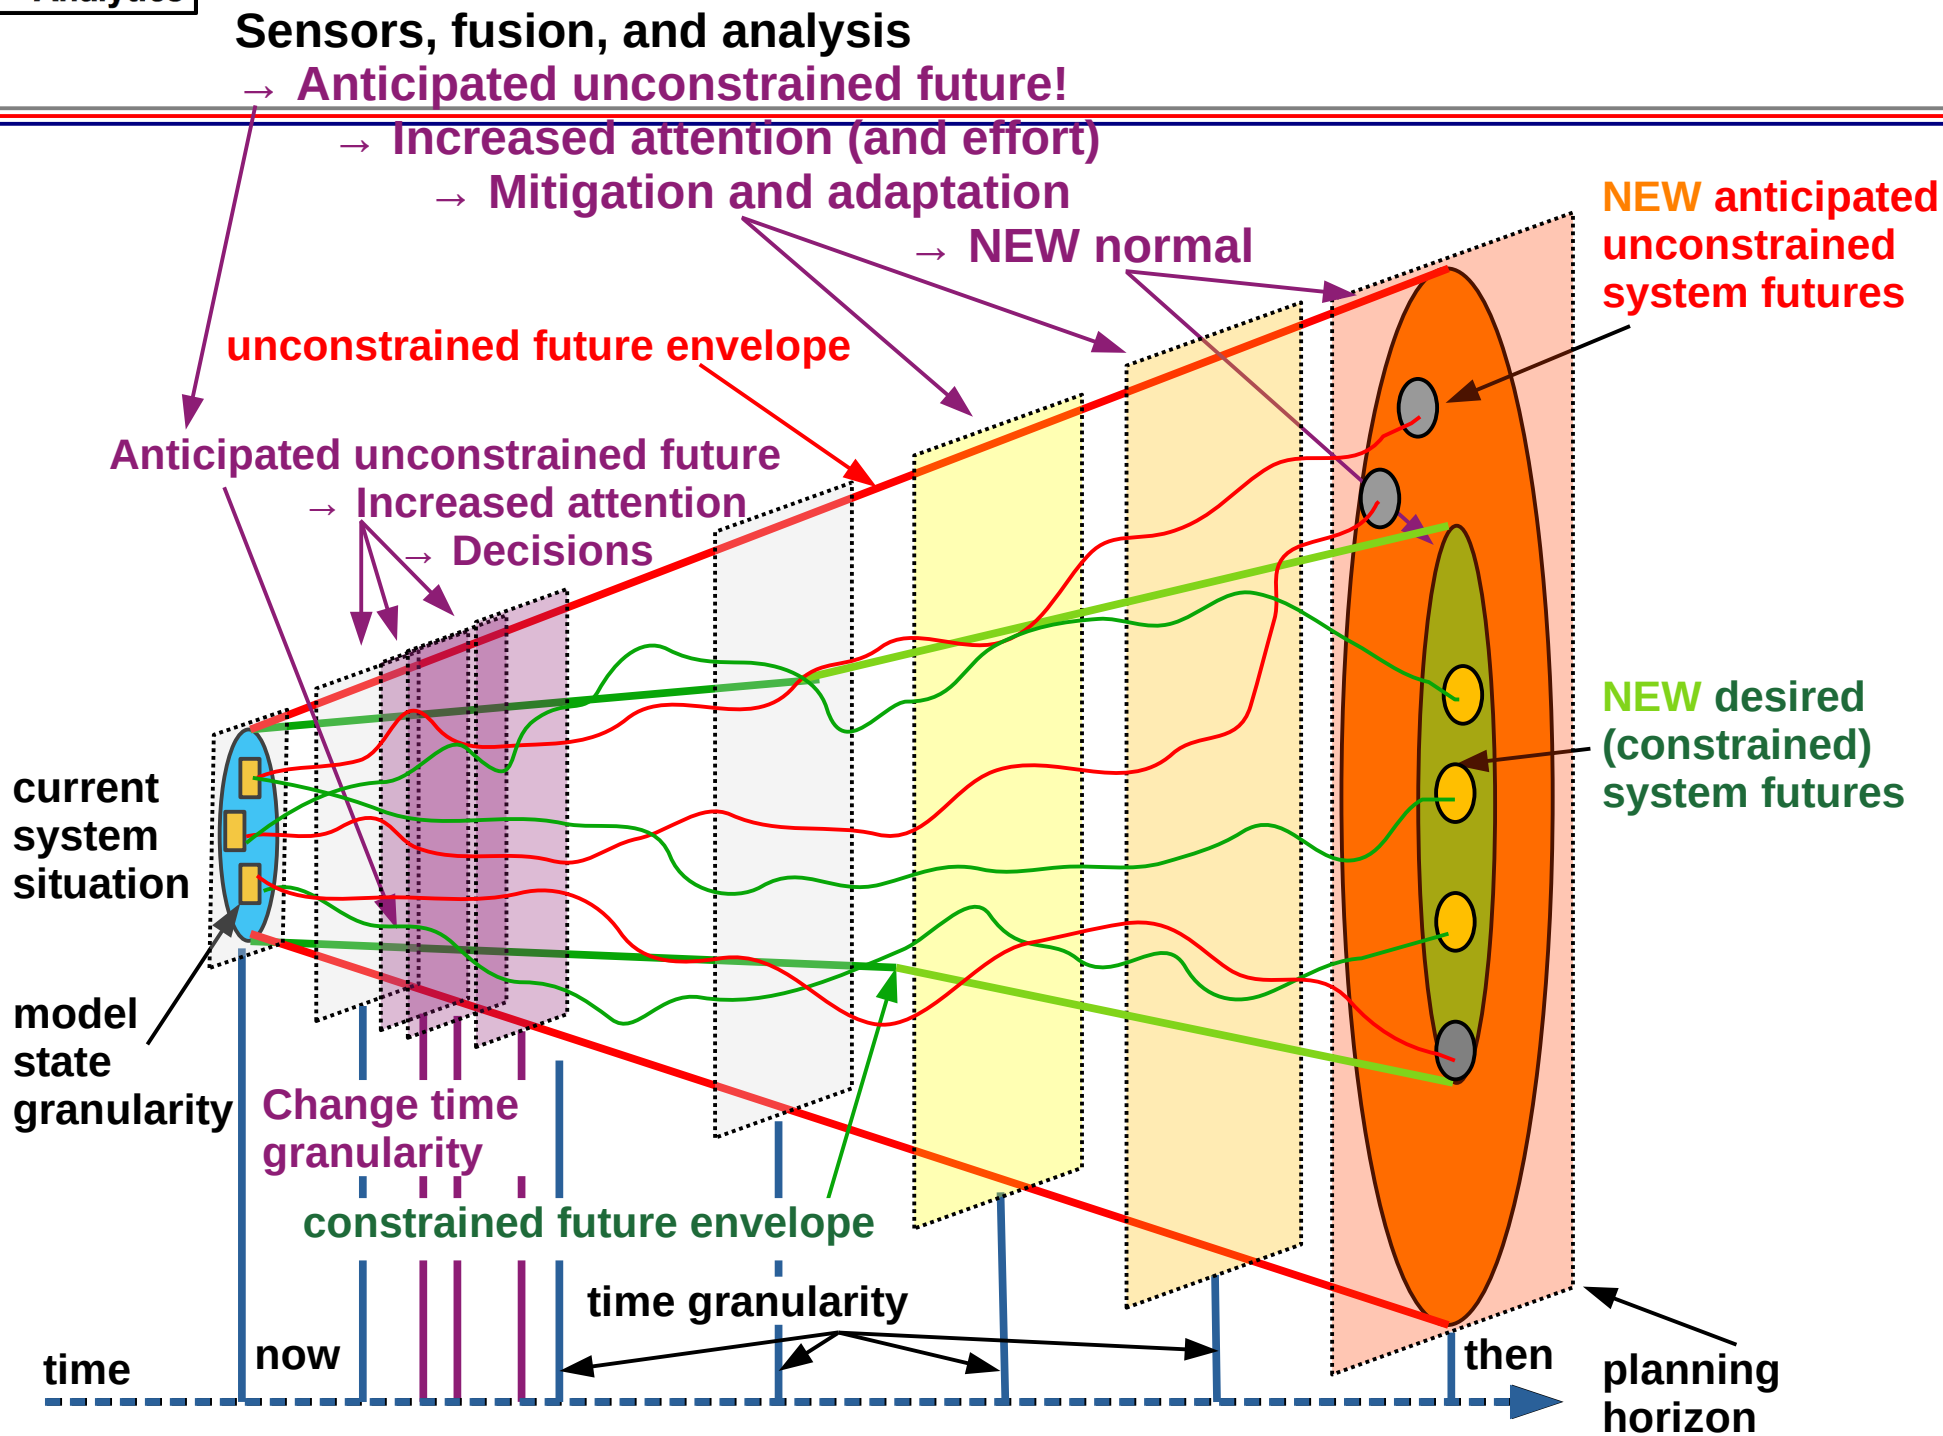 Analytics
Sensors, fusion, and analysis
→ Anticipated unconstrained future!
→ Increased attention (and effort)
→ Mitigation and adaptation
→ NEW normal
NEW anticipated
unconstrained
system futures
unconstrained future envelope
Anticipated unconstrained future
→ Increased attention
→ Decisions
NEW desired
(constrained)
system futures
current
system
situation
model
state
granularity
Change time
granularity
constrained future envelope
time granularity
time
now
then
planning
horizon